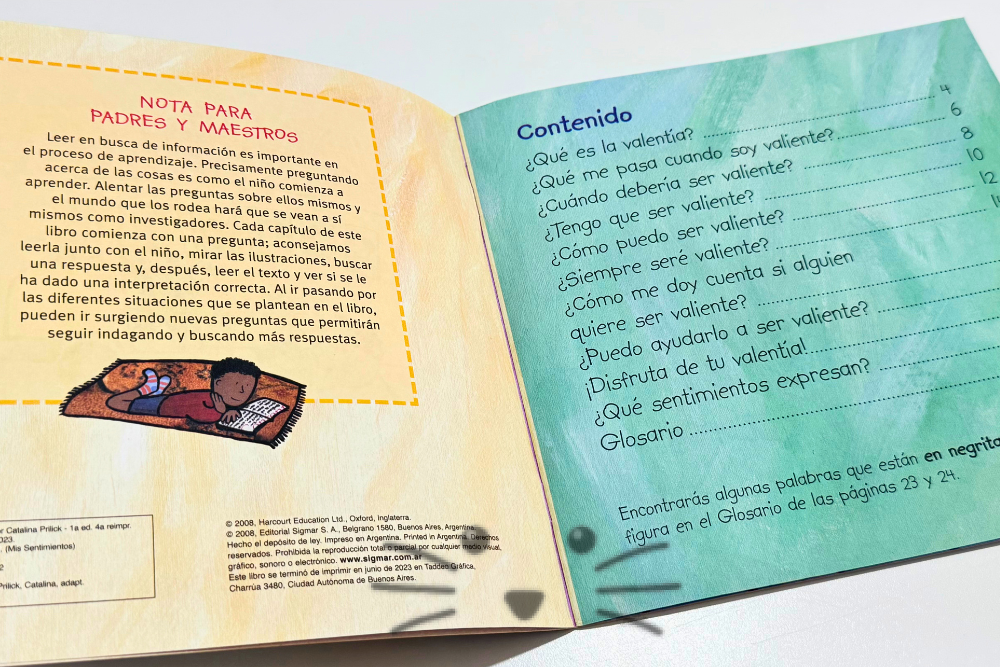 NOTA PARA
PADRES Y MAESTROS
Leer en busca de información es importante en
el proceso de aprendizaje. Precisamente preguntando
acerca de las cosas es como el niño comienza a
aprender. Alentar las preguntas sobre ellos mismos y
el mundo que los rodea hará que se vean a sí
mismos como investigadores. Cada capítulo de este
libro comienza con una pregunta; aconsejamos
leerla junto con el niño, mirar las ilustraciones, buscar
una respuesta y, después, leer el texto y ver si se le
ha dado una interpretación correcta. Al ir pasando por
las diferentes situaciones que se plantean en el libro,
pueden ir surgiendo nuevas preguntas que permitirán
seguir indagando y buscando más respuestas.
Catalina Prilick - 1a ed. 4a reimpr.
(Mis Sentimientos)
Prilick, Catalina, adapt.
© 2008, Harcourt Education Ltd., Oxford, Inglaterra.
© 2008, Editorial Sigmar S. A., Belgrano 1580, Buenos Aires, Argentina.
Hecho el depósito de ley. Impreso en Argentina. Printed in Argentina. Derechos
reservados. Prohibida la reproducción total o parcial por cualquier medio visual,
gráfico, sonoro o electrónico. www.sigmar.com.ar
Este libro se terminó de imprimir en junio de 2023 en Taddeo Gráfica,
Charrúa 3480, Ciudad Autónoma de Buenos Aires.
Contenido
¿Qué es la valentía? 4
¿Qué me pasa cuando soy valiente? 6
¿Cuándo debería ser valiente? 8
¿Tengo que ser valiente? 10
¿Cómo puedo ser valiente? 12
¿Siempre seré valiente?
¿Cómo me doy cuenta si alguien
quiere ser valiente?
¿Puedo ayudarlo a ser valiente?
¡Disfruta de tu valentía!
¿Qué sentimientos expresan?
Glosario
Encontrarás algunas palabras que están en negrita
figura en el Glosario de las páginas 23 y 24.